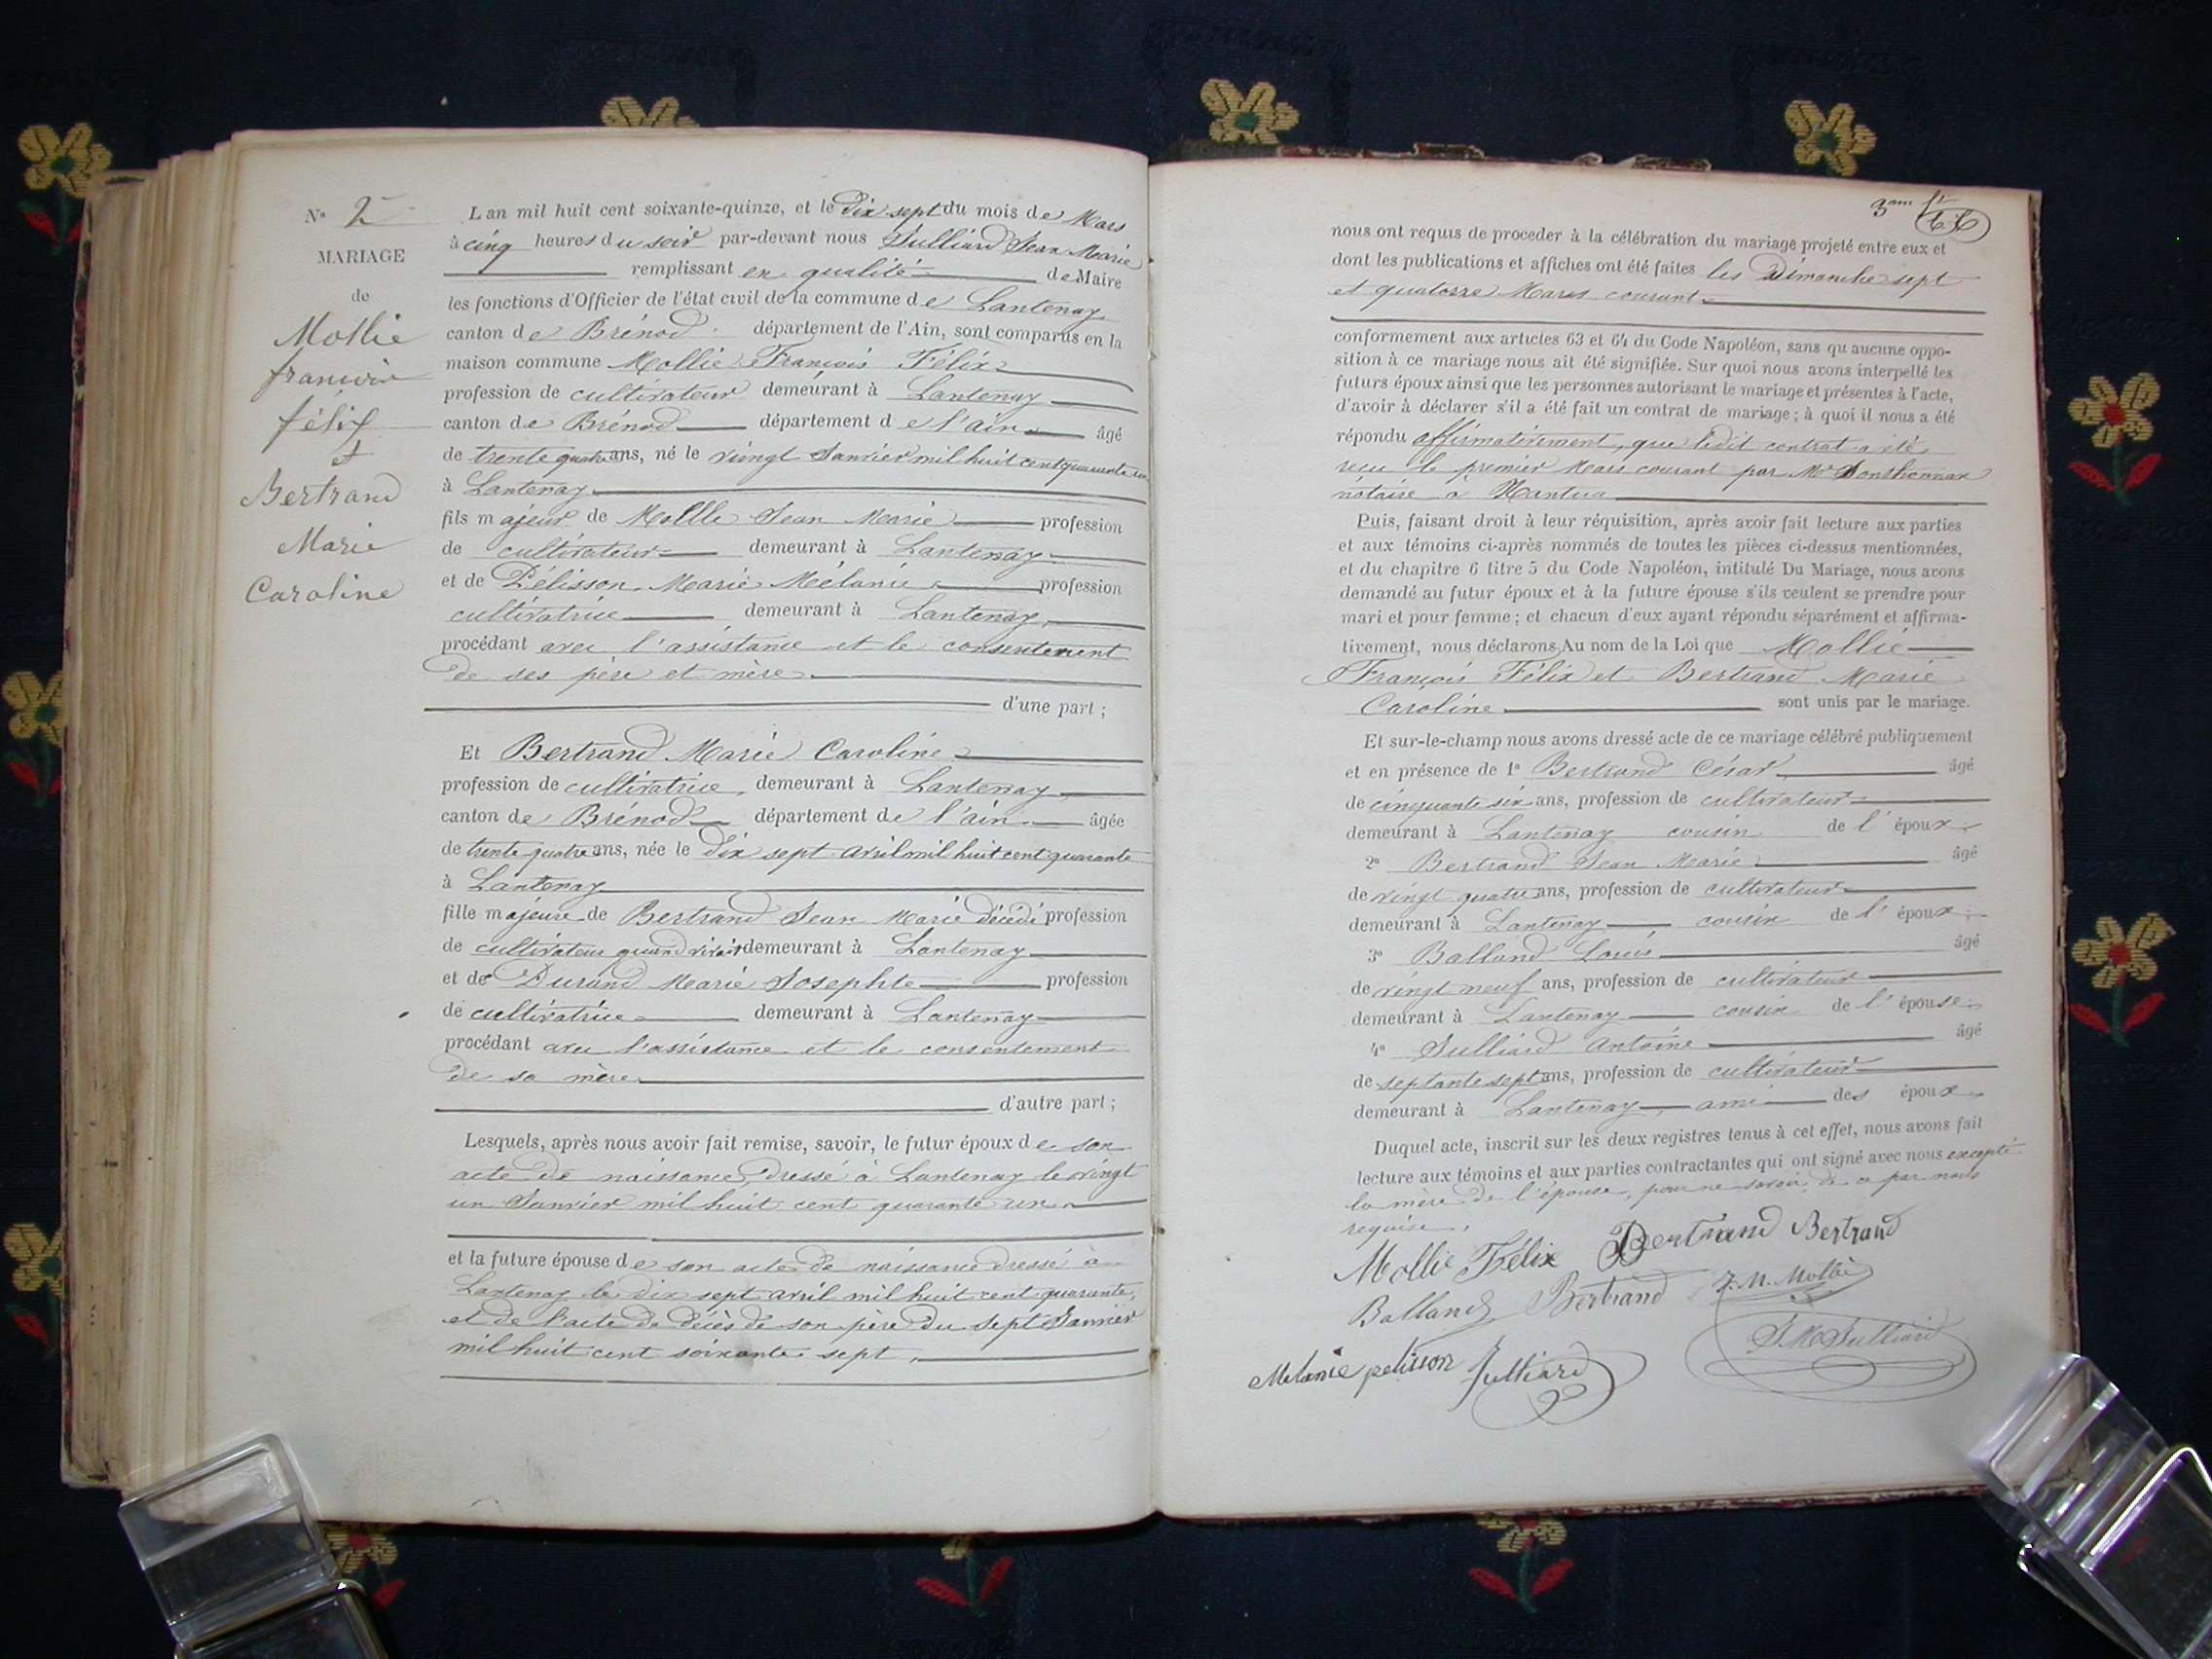 N° 2
MARIAGE
de
Mollie
françois
félix
et
Bertrand
Marie
Caroline
L an mil huit cent soixante-quinze, et le Dix sept du mois de Mars
à cinq heures du soir par-devant nous Julliard Jean Marie
remplissant en qualité de Maire
les fonctions d'Officier de l'état civil de la commune de Lantenay
canton de Brénod département de l'Ain, sont comparus en la
maison commune Mollie François Félix
profession de cultivateur demeurant à Lantenay
canton de Brénod département de l'ain âgé
de trente quatre ans, né le vingt Janvier mil huit cent quarante un
à Lantenay
fils majeur de Mollie Jean Marie profession
de cultivateur demeurant à Lantenay
et de Pélisson Marie Mélanie profession
cultivatrice demeurant à Lantenay
procédant avec l'assistance et le consentement
de ses père et mère
d'une part ;
Et Bertrand Marie Caroline
profession de cultivatrice, demeurant à Lantenay
canton de Brénod département de l'ain âgée
de trente quatre ans, née le dix sept avril mil huit cent quarante
à Lantenay
fille majeure de Bertrand Jean Marie décédé profession
de cultivateur quand vivait demeurant à Lantenay
et de Durand Marie Josephte profession
de cultivatrice demeurant à Lantenay
procédant avec l'assistance et le consentement
de sa mère
d'autre part ;
Lesquels, après nous avoir fait remise, savoir, le futur époux de son
acte de naissance, dressé à Lantenay le vingt
un Janvier mil huit cent quarante un
et la future épouse de son acte de naissance dressé à
Lantenay le dix sept avril mil huit cent quarante,
et de l'acte de décès de son père du sept Janvier
mil huit cent soixante sept,
3ème ft
66
nous ont requis de proceder à la célébration du mariage projeté entre eux et
dont les publications et affiches ont été faites les Dimanche sept
et quatorze Mars courant
conformement aux articles 63 et 64 du Code Napoléon, sans qu aucune oppo-
sition à ce mariage nous ait été signifiée. Sur quoi nous avons interpellé les
futurs époux ainsi que les personnes autorisant le mariage et présentes à l'acte,
d'avoir à déclarer s'il a été fait un contrat de mariage ; à quoi il nous a été
répondu affirmativement, que ledit contrat a été
reçu le premier Mars courant par Me
notaire à Nantua
Puis, faisant droit à leur réquisition, après avoir fait lecture aux parties
et aux témoins ci-après nommés de toutes les pièces ci-dessus mentionnées,
et du chapitre 6 titre 5 du Code Napoléon, intitulé Du Mariage, nous avons
demandé au futur époux et à la future épouse s'ils veulent se prendre pour
mari et pour femme ; et chacun d'eux ayant répondu séparément et affirma-
tivement, nous déclarons Au nom de la Loi que Mollie
François Félix et Bertrand Marie
Caroline sont unis par le mariage.
Et sur-le-champ nous avons dressé acte de ce mariage célébré publiquement
et en présence de 1° Bertrand César âgé
de cinquante six ans, profession de cultivateur
demeurant à Lantenay cousin de l' époux
2° Bertrand Jean Marie âgé
de vingt quatre ans, profession de cultivateur
demeurant à Lantenay cousin de l' époux
3° Balland Louis âgé
de vingt neuf ans, profession de cultivateur
demeurant à Lantenay cousin de l' épouse
4° Julliard Antoine âgé
de septante sept ans, profession de cultivateur
demeurant à Lantenay, ami des époux
Duquel acte, inscrit sur les deux registres tenus à cet effet, nous avons fait
lecture aux témoins et aux parties contractantes qui ont signé avec nous excepté
la mère de l'épouse, pour ne savoir, de a par nous
requise,
Mollie Félix Bertrand Bertrand
Balland Bertrand J. M. Mollie
Melanie pelisson Julliard J M Julliard